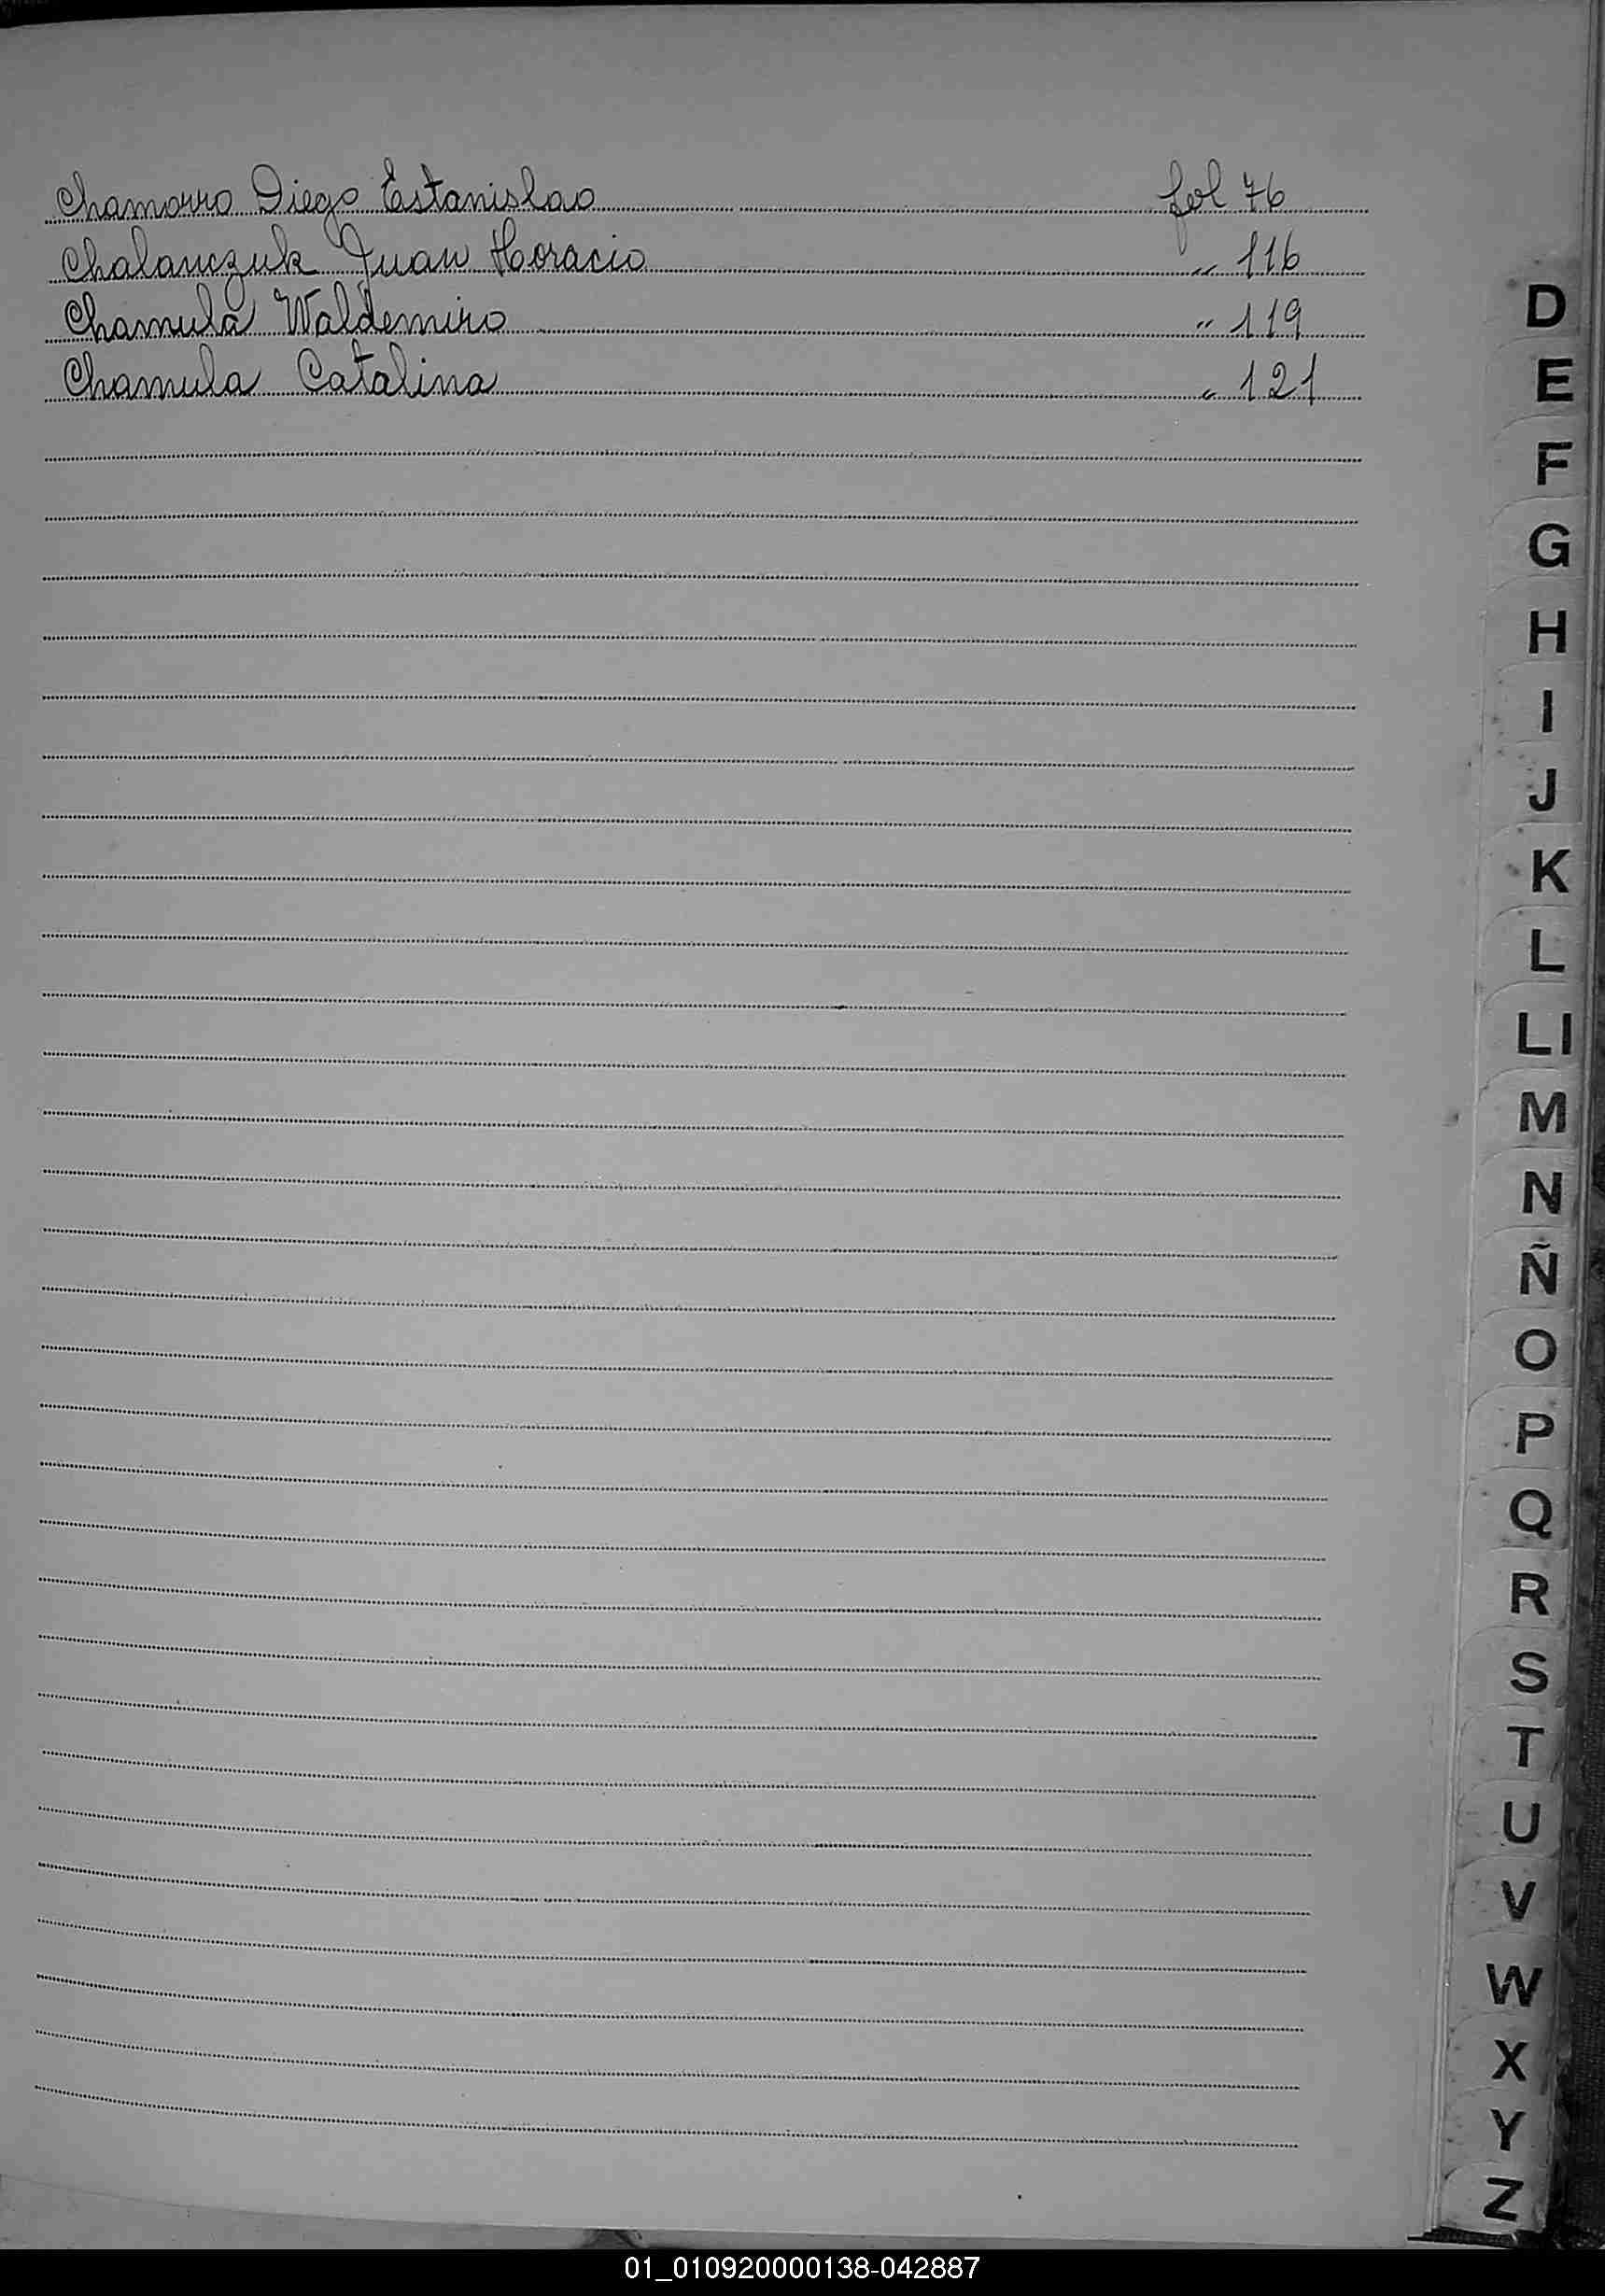 Chamorro Diego Estanislao fol 76
Chalanczuk Juan Horacio " 116
Chamula Waldemiro " 119
Chamula Catalina " 121
D
E
F
G
H
I
J
K
L
Ll
M
N
Ñ
O
P
Q
R
S
T
U
V
W
X
Y
Z
01_010920000138-042887